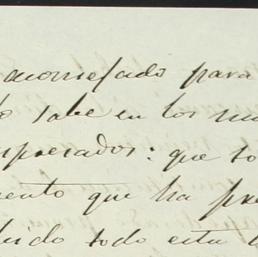 aconsejado para
sabe en los
presados: que to
ento que ha pre
ido todo esta